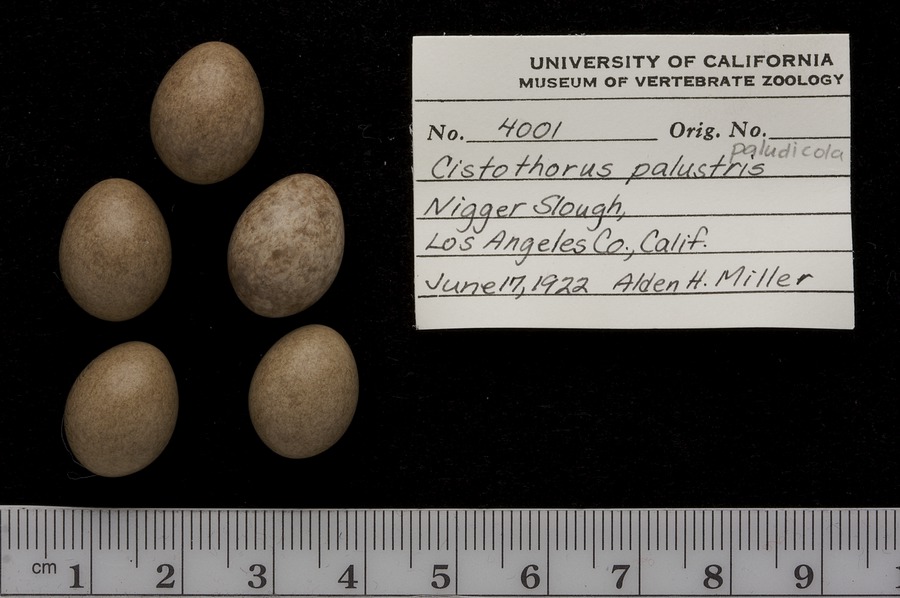 UNIVERSITY OF CALIFORNIA
MUSEUM OF VERTEBRATE ZOOLOGY
No. 4001 Orig. No.
paludicola
Cistothorus palustris
Nigger Slough,
Los Angeles Co., Calif.
June 17, 1922 Alden H. Miller
cm 1 2 3 4 5 6 7 8 9 1